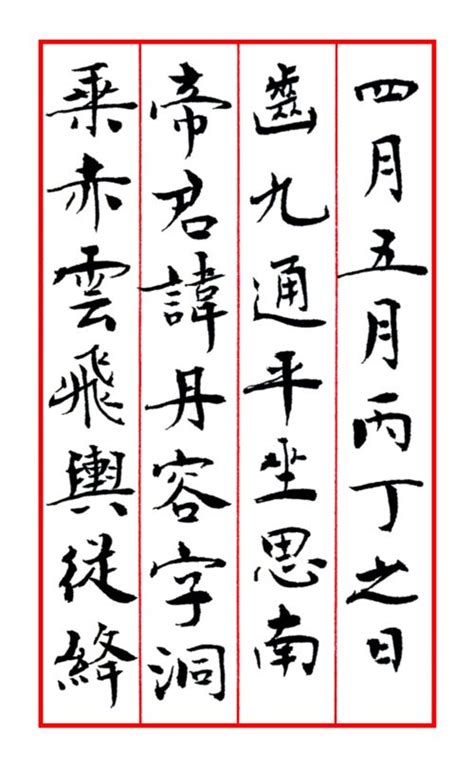 四月五月丙丁之日
齒九通平坐思南
帝君諱丹容字洞
乘赤雲飛輿從絳